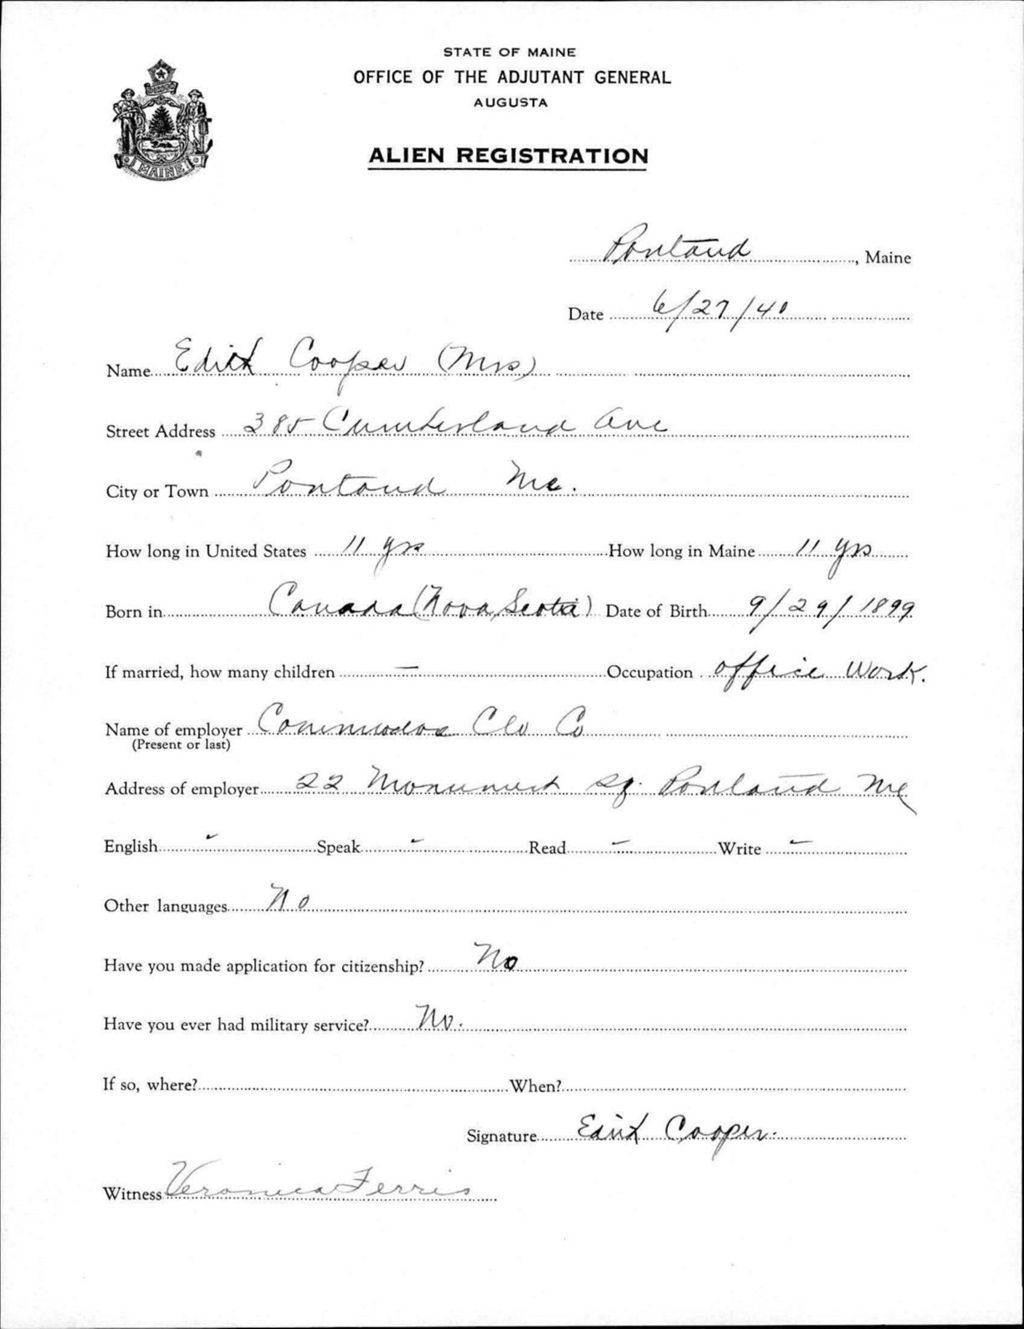 STATE OF MAINE
OFFICE OF THE ADJUTANT GENERAL
AUGUSTA
ALIEN REGISTRATION
MAINE
Portland, Maine
Date 6/27/40
Name Edith Cooper (Mrs)
Street Address 385 Cumberland Ave
City or Town Portland Me.
How long in United States 11 yrs How long in Maine 11 yrs
Born in Canada (Nova Scotia) Date of Birth 9/29/1899
If married, how many children — Occupation office Work.
Name of employer Commodore Clo Co
(Present or last)
Address of employer 22 Monument Sq. Portland Me
English - Speak - Read - Write -
Other languages No
Have you made application for citizenship? No
Have you ever had military service? No.
If so, where? When?
Signature Edith Cooper.
Witness Veronica Ferris